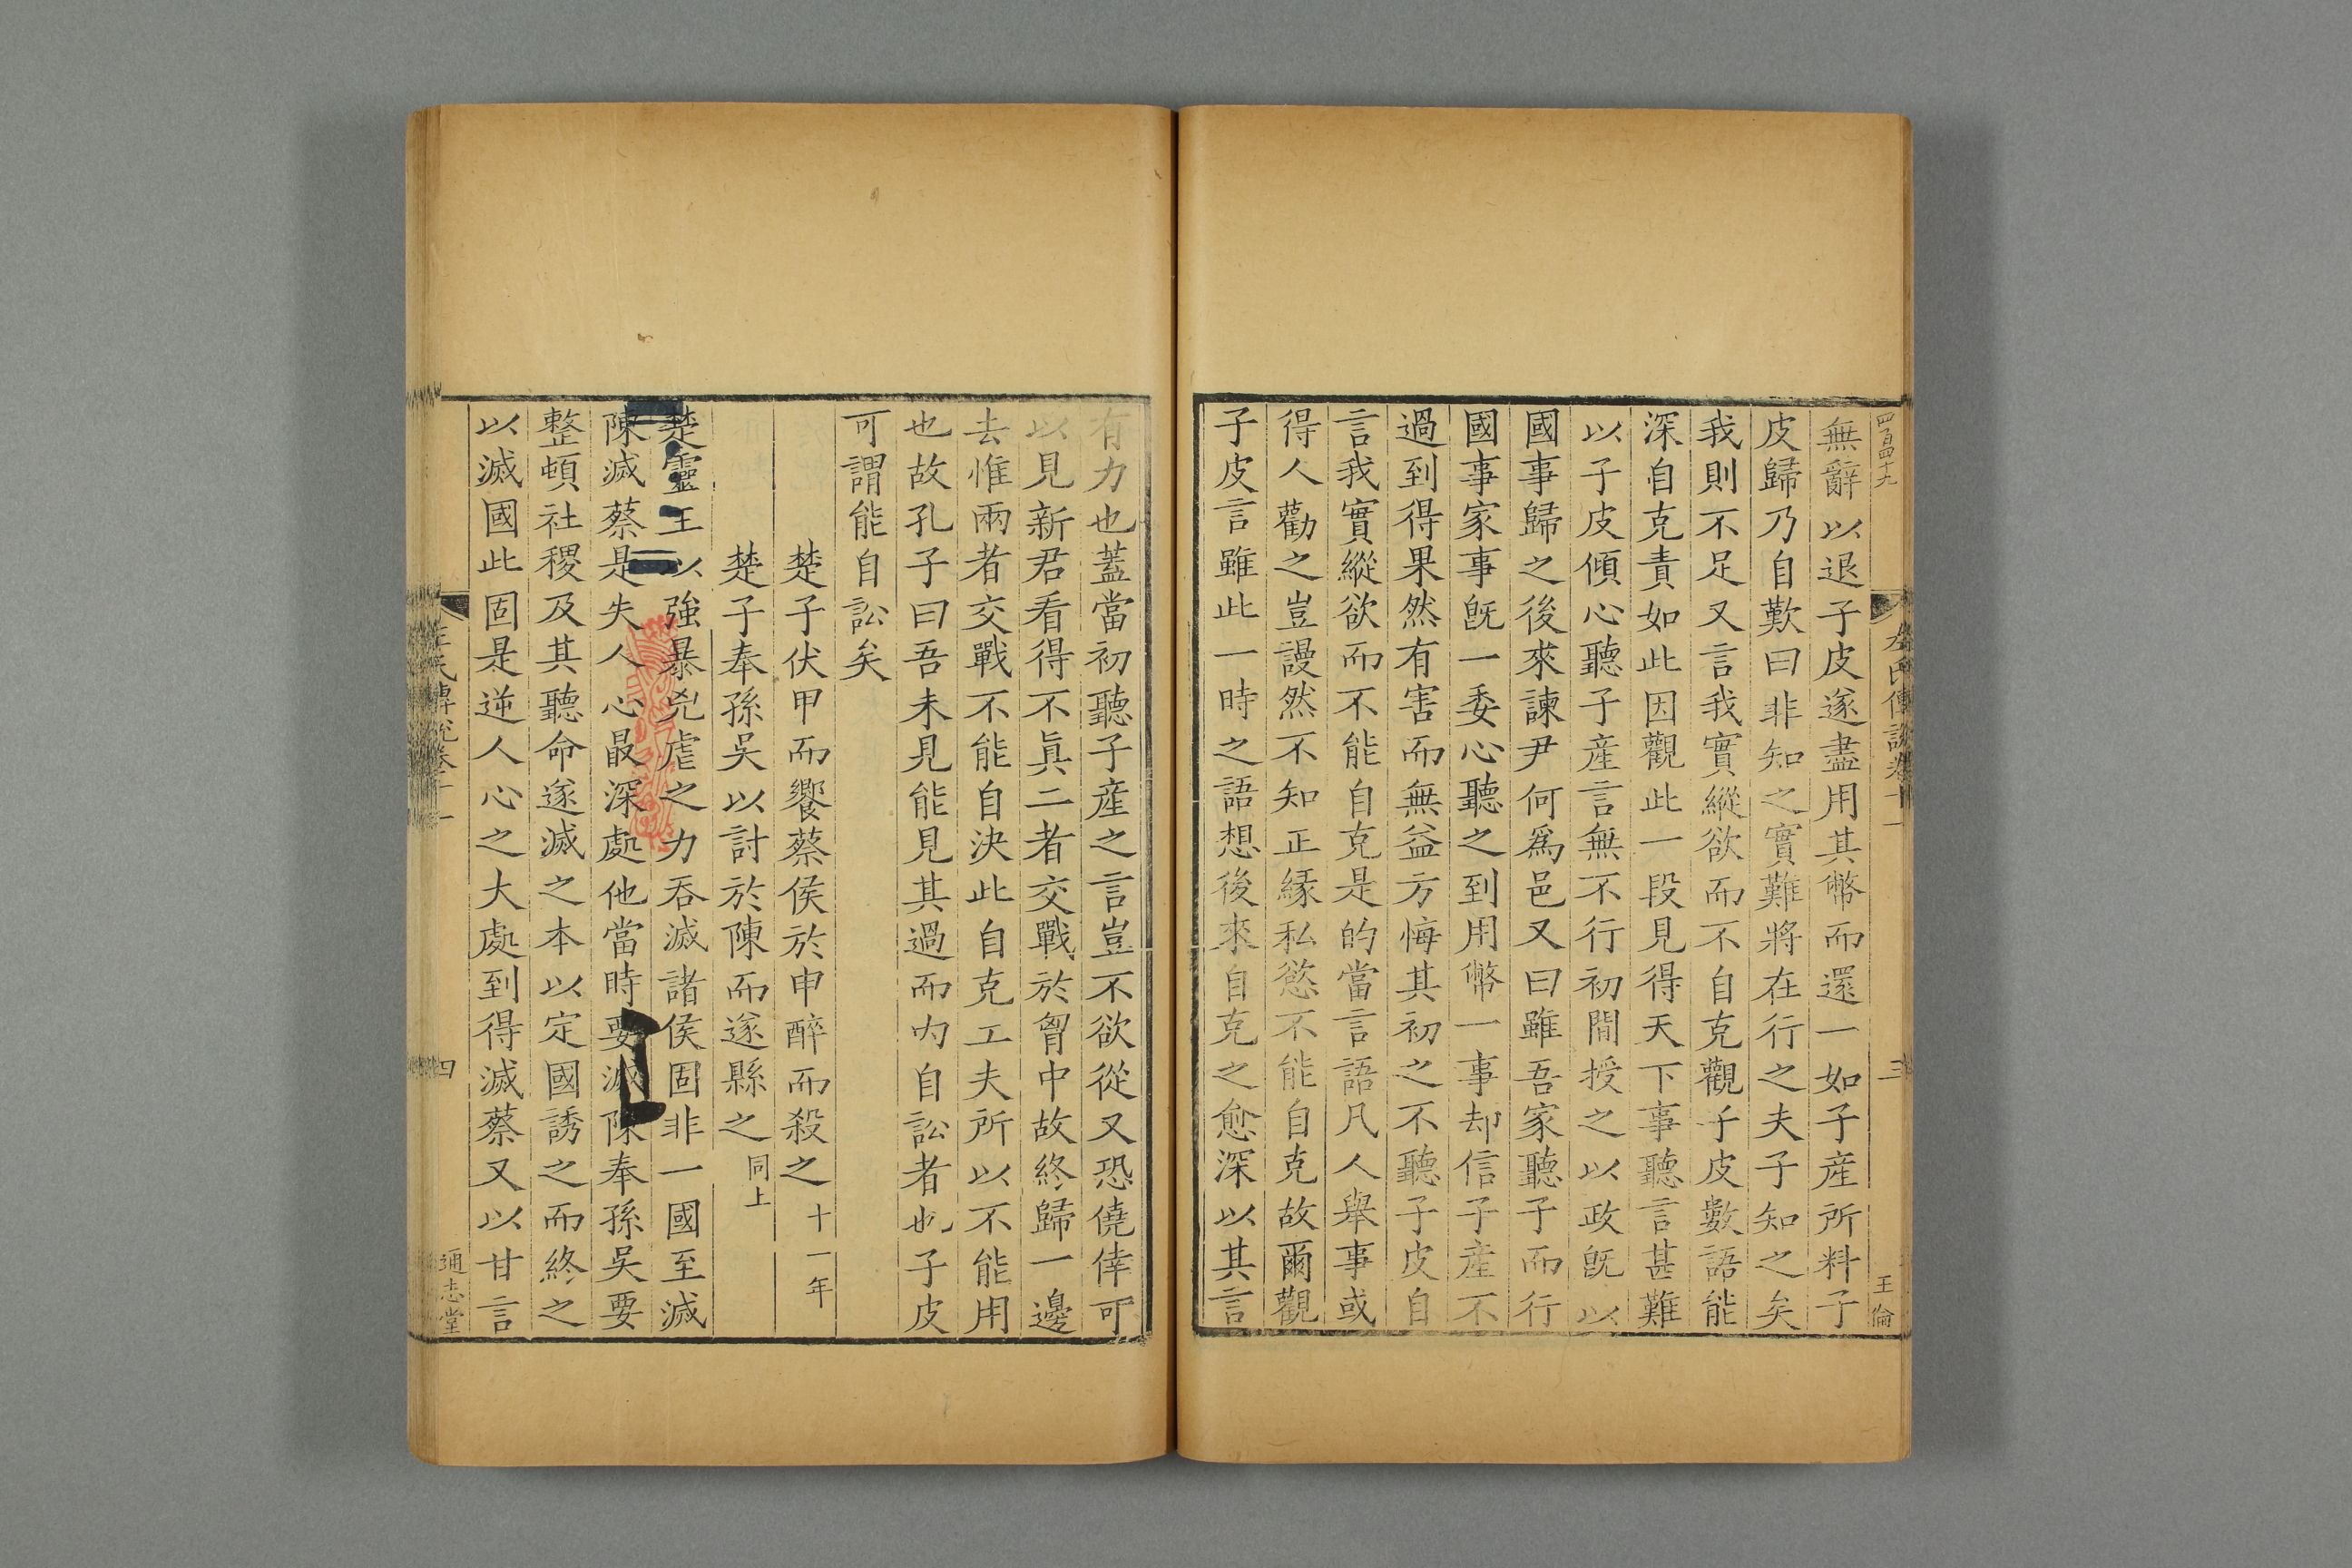 四百四十九
左氏傳說卷十一
三
王倫
無辭以退子皮遂盡用其幣而還一如子產所料子
皮歸乃自歎曰非知之實難將在行之夫子知之矣
我則不足又言我實縱欲而不自克觀子皮數語能
深自克責如此因觀此一段見得天下事聽言甚難
以子皮傾心聽子產言無不行初間授之以政旣以
國事歸之後來諫尹何爲邑又曰雖吾家聽子而行
國事家事旣一委心聽之到用幣一事却信子產不
過到得果然有害而無益方悔其初之不聽子皮自
言我實縱欲而不能自克是的當言語凡人舉事或
得人勸之豈謾然不知正緣私慾不能自克故爾觀
子皮言雖此一時之語想後來自克之愈深以其言
有力也蓋當初聽子產之言豈不欲從又恐僥倖可
以見新君看得不眞二者交戰於胷中故終歸一邊
去惟兩者交戰不能自決此自克工夫所以不能用
也故孔子曰吾未見能見其過而內自訟者也子皮
可謂能自訟矣
楚子伏甲而饗蔡侯於申醉而殺之十一年
楚子奉孫吳以討於陳而遂縣之同上
楚靈王以強暴兇虐之力吞滅諸侯固非一國至滅
陳滅蔡是失人心最深處他當時要滅陳奉孫吳要
整頓社稷及其聽命遂滅之本以定國誘之而終之
以滅國此固是逆人心之大處到得滅蔡又以甘言
左氏傳說卷十一
四
通志堂